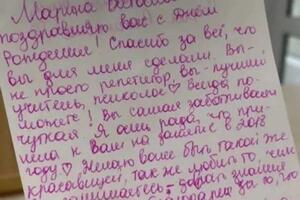 Марина
поздравляю вас с Днём
рождения! Спасибо за всё, что
вы для меня сделали. Вы-
не просто репетитор, вы-лучший
учитель, психолог ♡ Всегда по-
можете! Вы самая заботливая
чужая Я очень рада, что при-
шла к вам на занятие в 2018
году ♡ Желаю вам быть такой же
красавицей, так же любить то, чем
занимаетесь, знания
за то, что